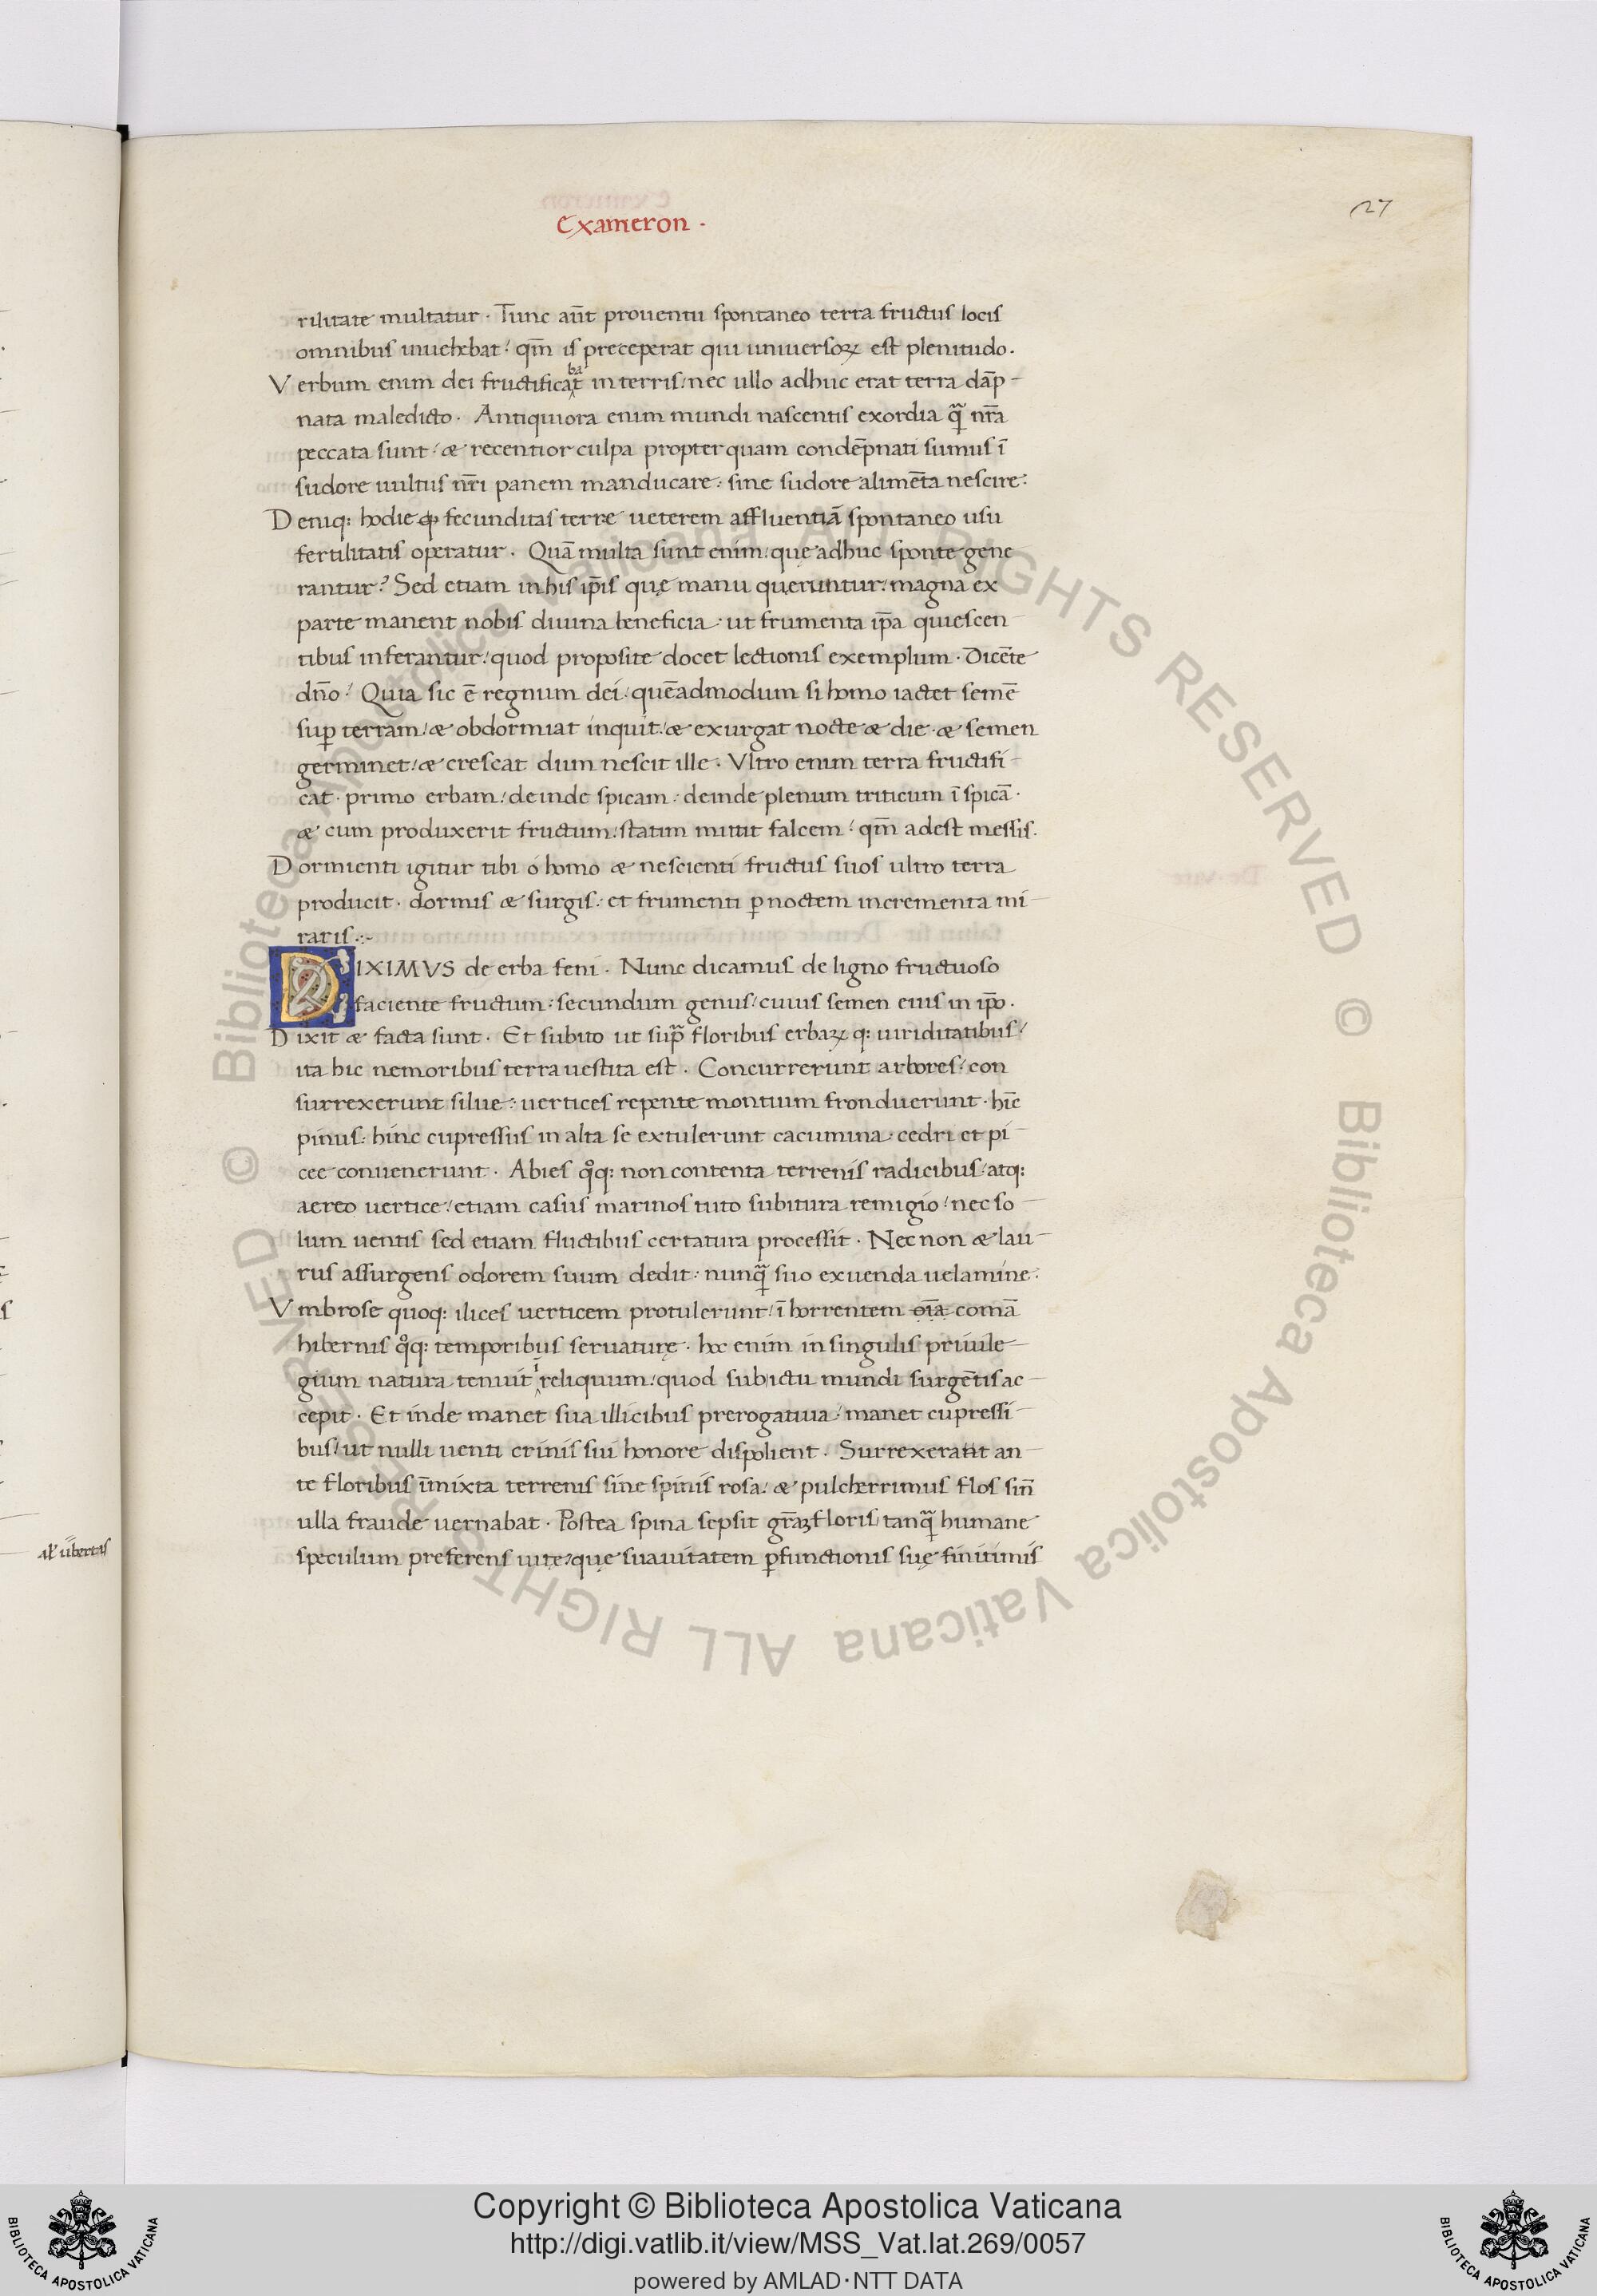 Exameron ·
27
rilitate multatur · Tunc aūt prouentu spontaneo terra fructus locis
omnibus inuehebat : qm̄ is preceperat qui uniuersoꝝ est plenitudo ·
Verbum enim dei fructificabat in terris : nec ullo adhuc erat terra dāp
nata maledicto · Antiquiora enim mundi nascentis exordia q̄ nr̄a
peccata sunt : & recentior culpa propter quam condēpnati sumus ī
sudore uultus nr̄i panem manducare : sine sudore alimēta nescire :
Deniq: hodie fecunditas terre ueterem affluentiā spontaneo usu
fertilitatis operatur · Quā multa sunt enim : que adhuc sponte gene
rantur ? Sed etiam in his ip̄is quę manu queruntur : magna ex
parte manent nobis diuina beneficia · ut frumenta ip̄a quiescen
tibus inferantur : quod proposite docet lectionis exemplum · Dicēte
dn̄o : Quia sic ē regnum dei : quēadmodum si homo iactet semē
suꝑ terram : & obdormiat inquit : & exurgat nocte & die · & semen
germinet : & crescat dum nescit ille · Vltro enim terra fructifi
cat · primo erbam : deinde spicam : deinde plenum triticum ī spicā ·
& cum produxerit fructum : statim mittit falcem : qm̄ adest messis.
Dormienti igitur tibi o homo & nescienti fructus suos ultro terra
producit · dormis & surgis : et frumenti ꝑ noctem incrementa mi
raris :~
DIXIMVS de erba feni · Nunc dicamus de ligno fructuoso
faciente fructum : secundum genus : cuius semen eius in ip̄o ·
Dixit & facta sunt · Et subito ut sup̄ floribus erbaꝝ q: uiriditatibus :
ita hic nemoribus terra uestita est · Concurrerunt arbores : con
surrexerunt silue : uertices repente montium fronduerunt · hīc
pinus : hinc cupressus in alta se extulerunt cacumina : cedri et pi
cee conuenerunt · Abies qͦq: non contenta terrenis radicibus : atq:
aereo uertice : etiam casus marinos tuto subitura remigio : nec so
lum uentis sed etiam fluctibus certatura processit · Nec non & lau
rus assurgens odorem suum dedit : nunq̄ suo exuenda uelamine :
Vmbrose quoq: ilices uerticem protulerunt : ī horrentem oīa comā
hibernis qͦq: temporibus seruaturę · hoc enim in singulis priuile
gium natura tenuit ī reliquum : quod sub ictu mundi surgētis ac
cepit · Et inde manet sua illicibus prerogatiua : manet cupressi
bus : ut nulli uenti crinis sui honore dispolient · Surrexerant an
te floribus īmixta terrenis sine spinis rosa : & pulcherrimus flos sin̄
ulla fraude uernabat · Postea spina sepsit gr̄aꝫ floris tanq̄ humane
speculum preferens uitę : quę suauitatem ꝑfunctionis suę finitimis
al' ubertas
Copyright © Biblioteca Apostolica Vaticana
http://digi.vatlib.it/view/MSS_Vat.lat.269/0057
powered by AMLAD·NTT DATA
© Biblioteca Apostolica Vaticana ALL RIGHTS RESERVED
© Biblioteca Apostolica Vaticana ALL RIGHTS RESERVED
BIBLIOTECA APOSTOLICA VATICANA
BIBLIOTECA APOSTOLICA VATICANA